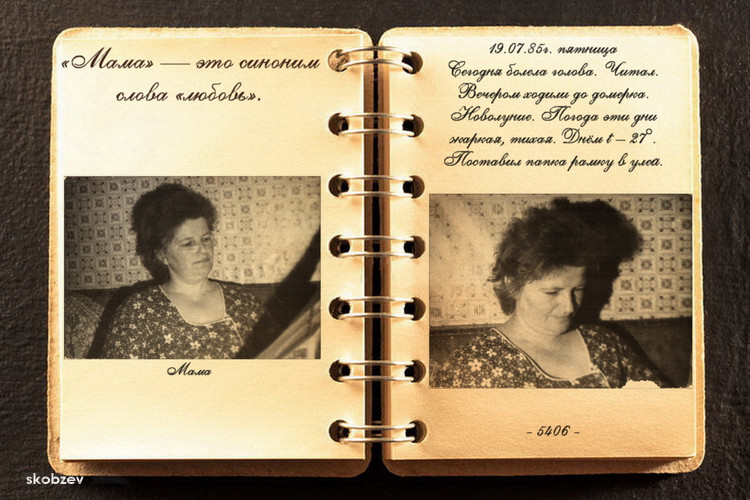 «Мама» — это синоним
слова «любовь».
Мама
19.07.85г. пятница
Сегодня болела голова. Читал.
Вечером ходили до домерка.
Новолуние. Погода эти дни
жаркая, тихая. Днём t – 27°.
Поставил папка рамку в улей.
- 5406 -
skobzev